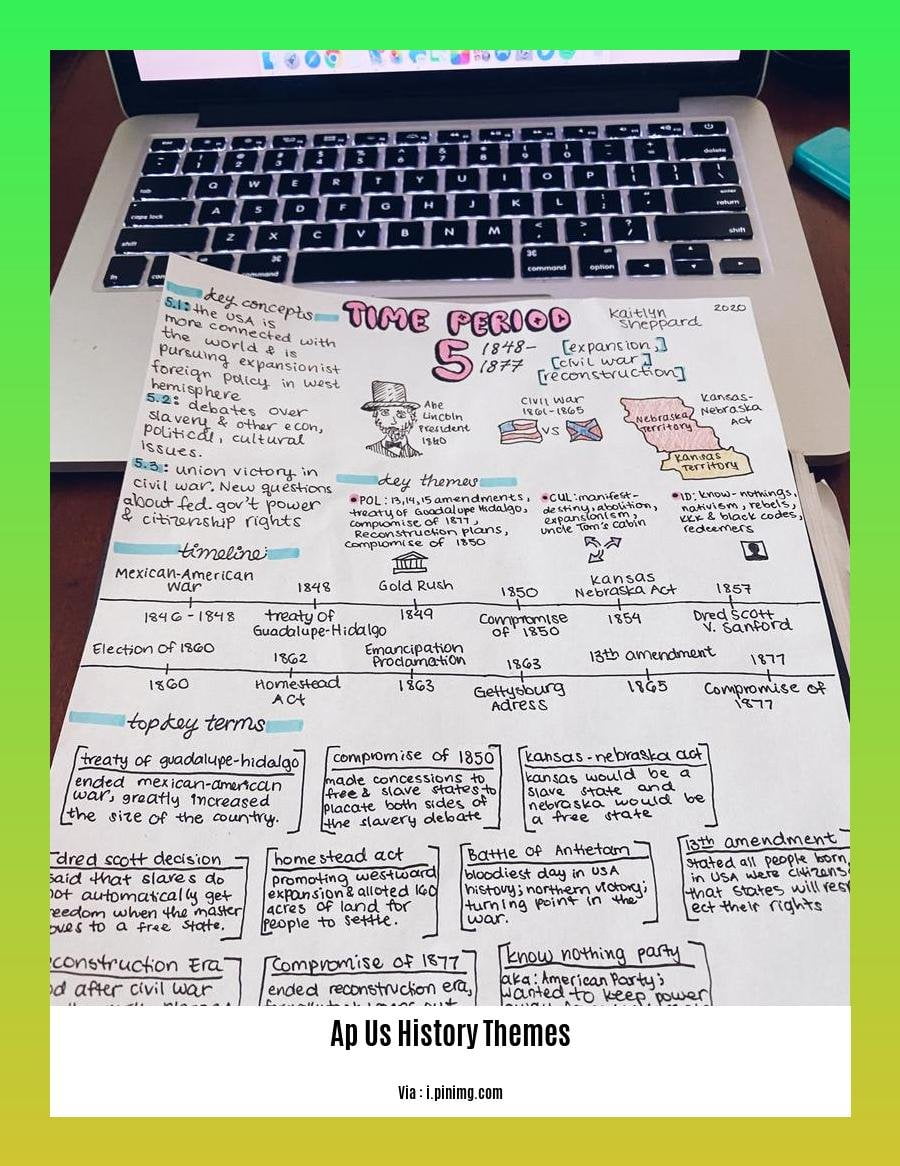 key concepts
5.1: the USA is
more connected with
the world & is
pursuing expansionist
foreign policy in west
hemisphere
5.2: debates over
slavery & other econ,
political, cultural
issues.
5.3: union victory in
civil war. New questions
about fed. gov't power
& citizenship rights
TIME PERIOD
5
1848-
1877
[expansion,]
[civil war]
[reconstruction]
kaitlyn
sheppard
2020
Abe
Lincoln
President
1860
Civil War
1861-1865
VS
Nebraska
Territory
Kansas
Territory
Kansas-
Nebraska
Act
key themes
POL: 13,14,15 amendments,
treaty of Guadalupe Hidalgo,
compromise of 1877,
Reconstruction plans,
compromise of 1850
CUL: manifest-
destiny, abolition,
expansionism,
uncle Tom's cabin
ID: know-nothings,
nativism, rebels,
KKK & black codes,
redeemers
timeline:
Mexican-American
War
1846-1848
1848
treaty of
Guadalupe-Hidalgo
Gold Rush
1849
1850
Compromise
of 1850
Kansas
Nebraska Act
1854
1857
Dred Scott
V. Sanford
Election of 1860
1860
1862
Homestead
Act
Emancipation
Proclamation
1863
1863
Gettysburg
Adress
13th amendment
1865
1877
Compromise of
1877
top key terms
treaty of guadalupe-hidalgo
ended mexican-american
war, greatly increased
the size of the country.
compromise of 1850
made concessions to
free & slave states to
placate both sides of
the slavery debate
kansas-nebraska act
kansas would be a
slave state and
nebraska would be
a free state
dred scott decision
said that slaves do
not automatically get
freedom when the master
moves to a free state.
homestead act
promoting westward
expansion & alloted 160
acres of land for
people to settle.
Battle of Antietam
bloodiest day in USA
history; northern victory;
turning point in the
war.
13th amendment
stated all people born
in USA were citizens
that states will resp
ect their rights
construction Era
after civil war
Compromise of 1877
ended reconstruction era,
know nothing party
aka: American Party;
wanted to keep power
tab
caps lock
shift
fn
command
command
option
delete
enter
return
shift
Q W E R T Y U I O P
A S D F G H J K L
Z X C V B N M
Ap Us History Themes
Via : i.pinimg.com